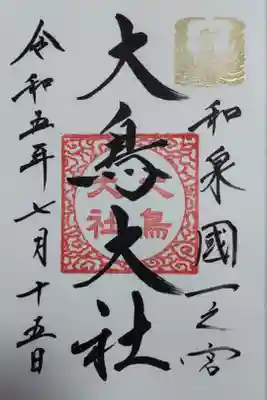 和泉國一之宮
大鳥大社
大鳥大社
令和五年七月十五日